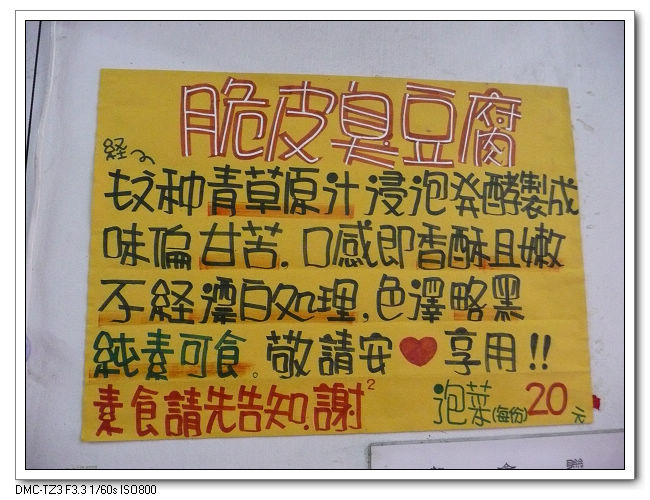 脆皮臭豆腐
経
数种青草原汁浸泡発酵製成
味偏甘苦。口感即香酥且嫩
不経漂白処理,色澤略黑
純素可食。敬請安❤享用!!
素食請先告知.謝²
泡菜(每份)20元
DMC-TZ3 F3.3 1/60s ISO800